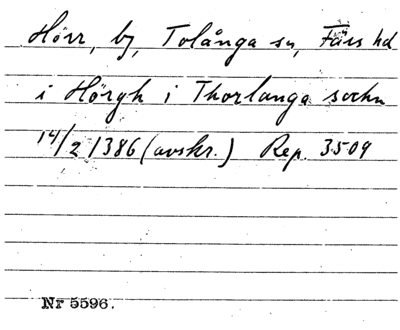 Hörr, by, Tolånga sn, Färs hd
i Hörgh i Thorlanga sochn
14/2 1386 (avskr.) Rep. 3509
Nr 5596.